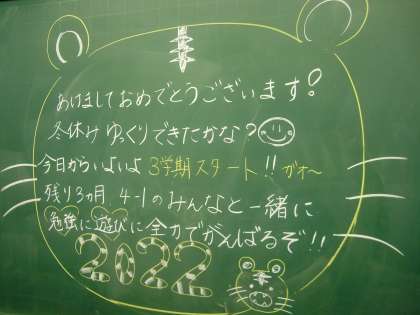 あけましておめでとうございます!
冬休みゆっくりできたかな?
今日からいよいよ 3学期スタート!! ガオ〜
残り3ヵ月、4-1のみんなと一緒に
勉強に遊びに全力でがんばるぞ!!
2022